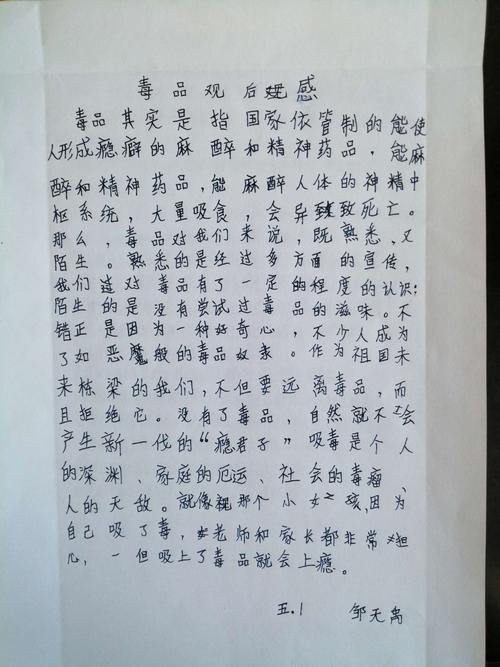 毒品观后感
毒品其实是指国家依管制的能使
人形成瘾癖的麻醉和精神药品，能麻
醉和精神药品，能麻醉人体的神精中
枢系统，大量吸食，会导致致死亡。
那么，毒品对我们来说，既熟悉，又
陌生。熟悉的是经过多方面的宣传，
我们连对毒品有了一定的程度的认识；
陌生的是没有尝试过毒品的滋味。不
错正是因为一种好奇心，不少人成为
了如恶魔般的毒品奴隶。作为祖国未
来栋梁的我们，不但要远离毒品，而
且拒绝它。没有了毒品，自然就不会
产生新一代的“瘾君子”吸毒是个人
的深渊、家庭的厄运、社会的毒瘤、
人的天敌。就像那个小女孩，因为
自己吸了毒，老师和家长都非常担
心，一但吸上了毒品就会上瘾。
五.1 邹天禹